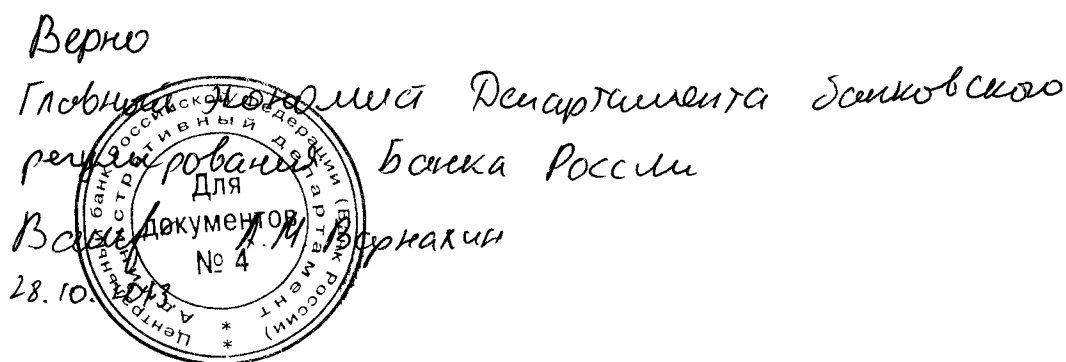 Верно
Главный экономист Департамента банковского
регулирования Банка России
А.М. Варнакин
28.10.2013
Центральный банк Российской Федерации (Банк России)
Административный департамент
Для
документов
№ 4
* *